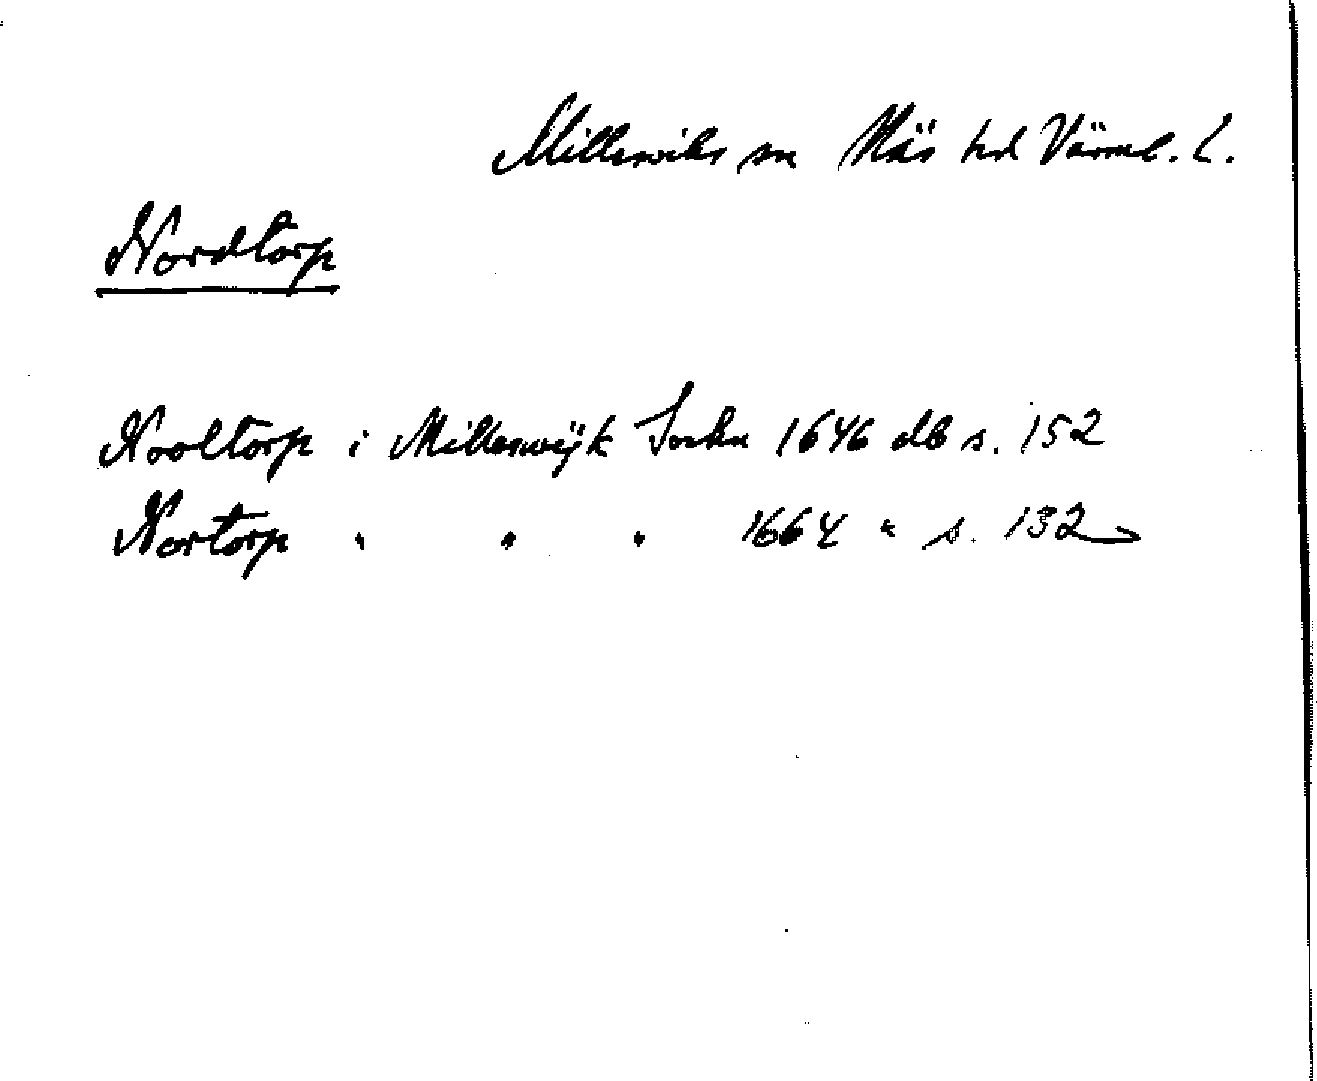 Millesviks sn Näs hd Värml. L.
Nordtorp
Nooltorp i Milleswijk Sockn 1646 db s. 152
Nortorp " " " 1664 " s. 132